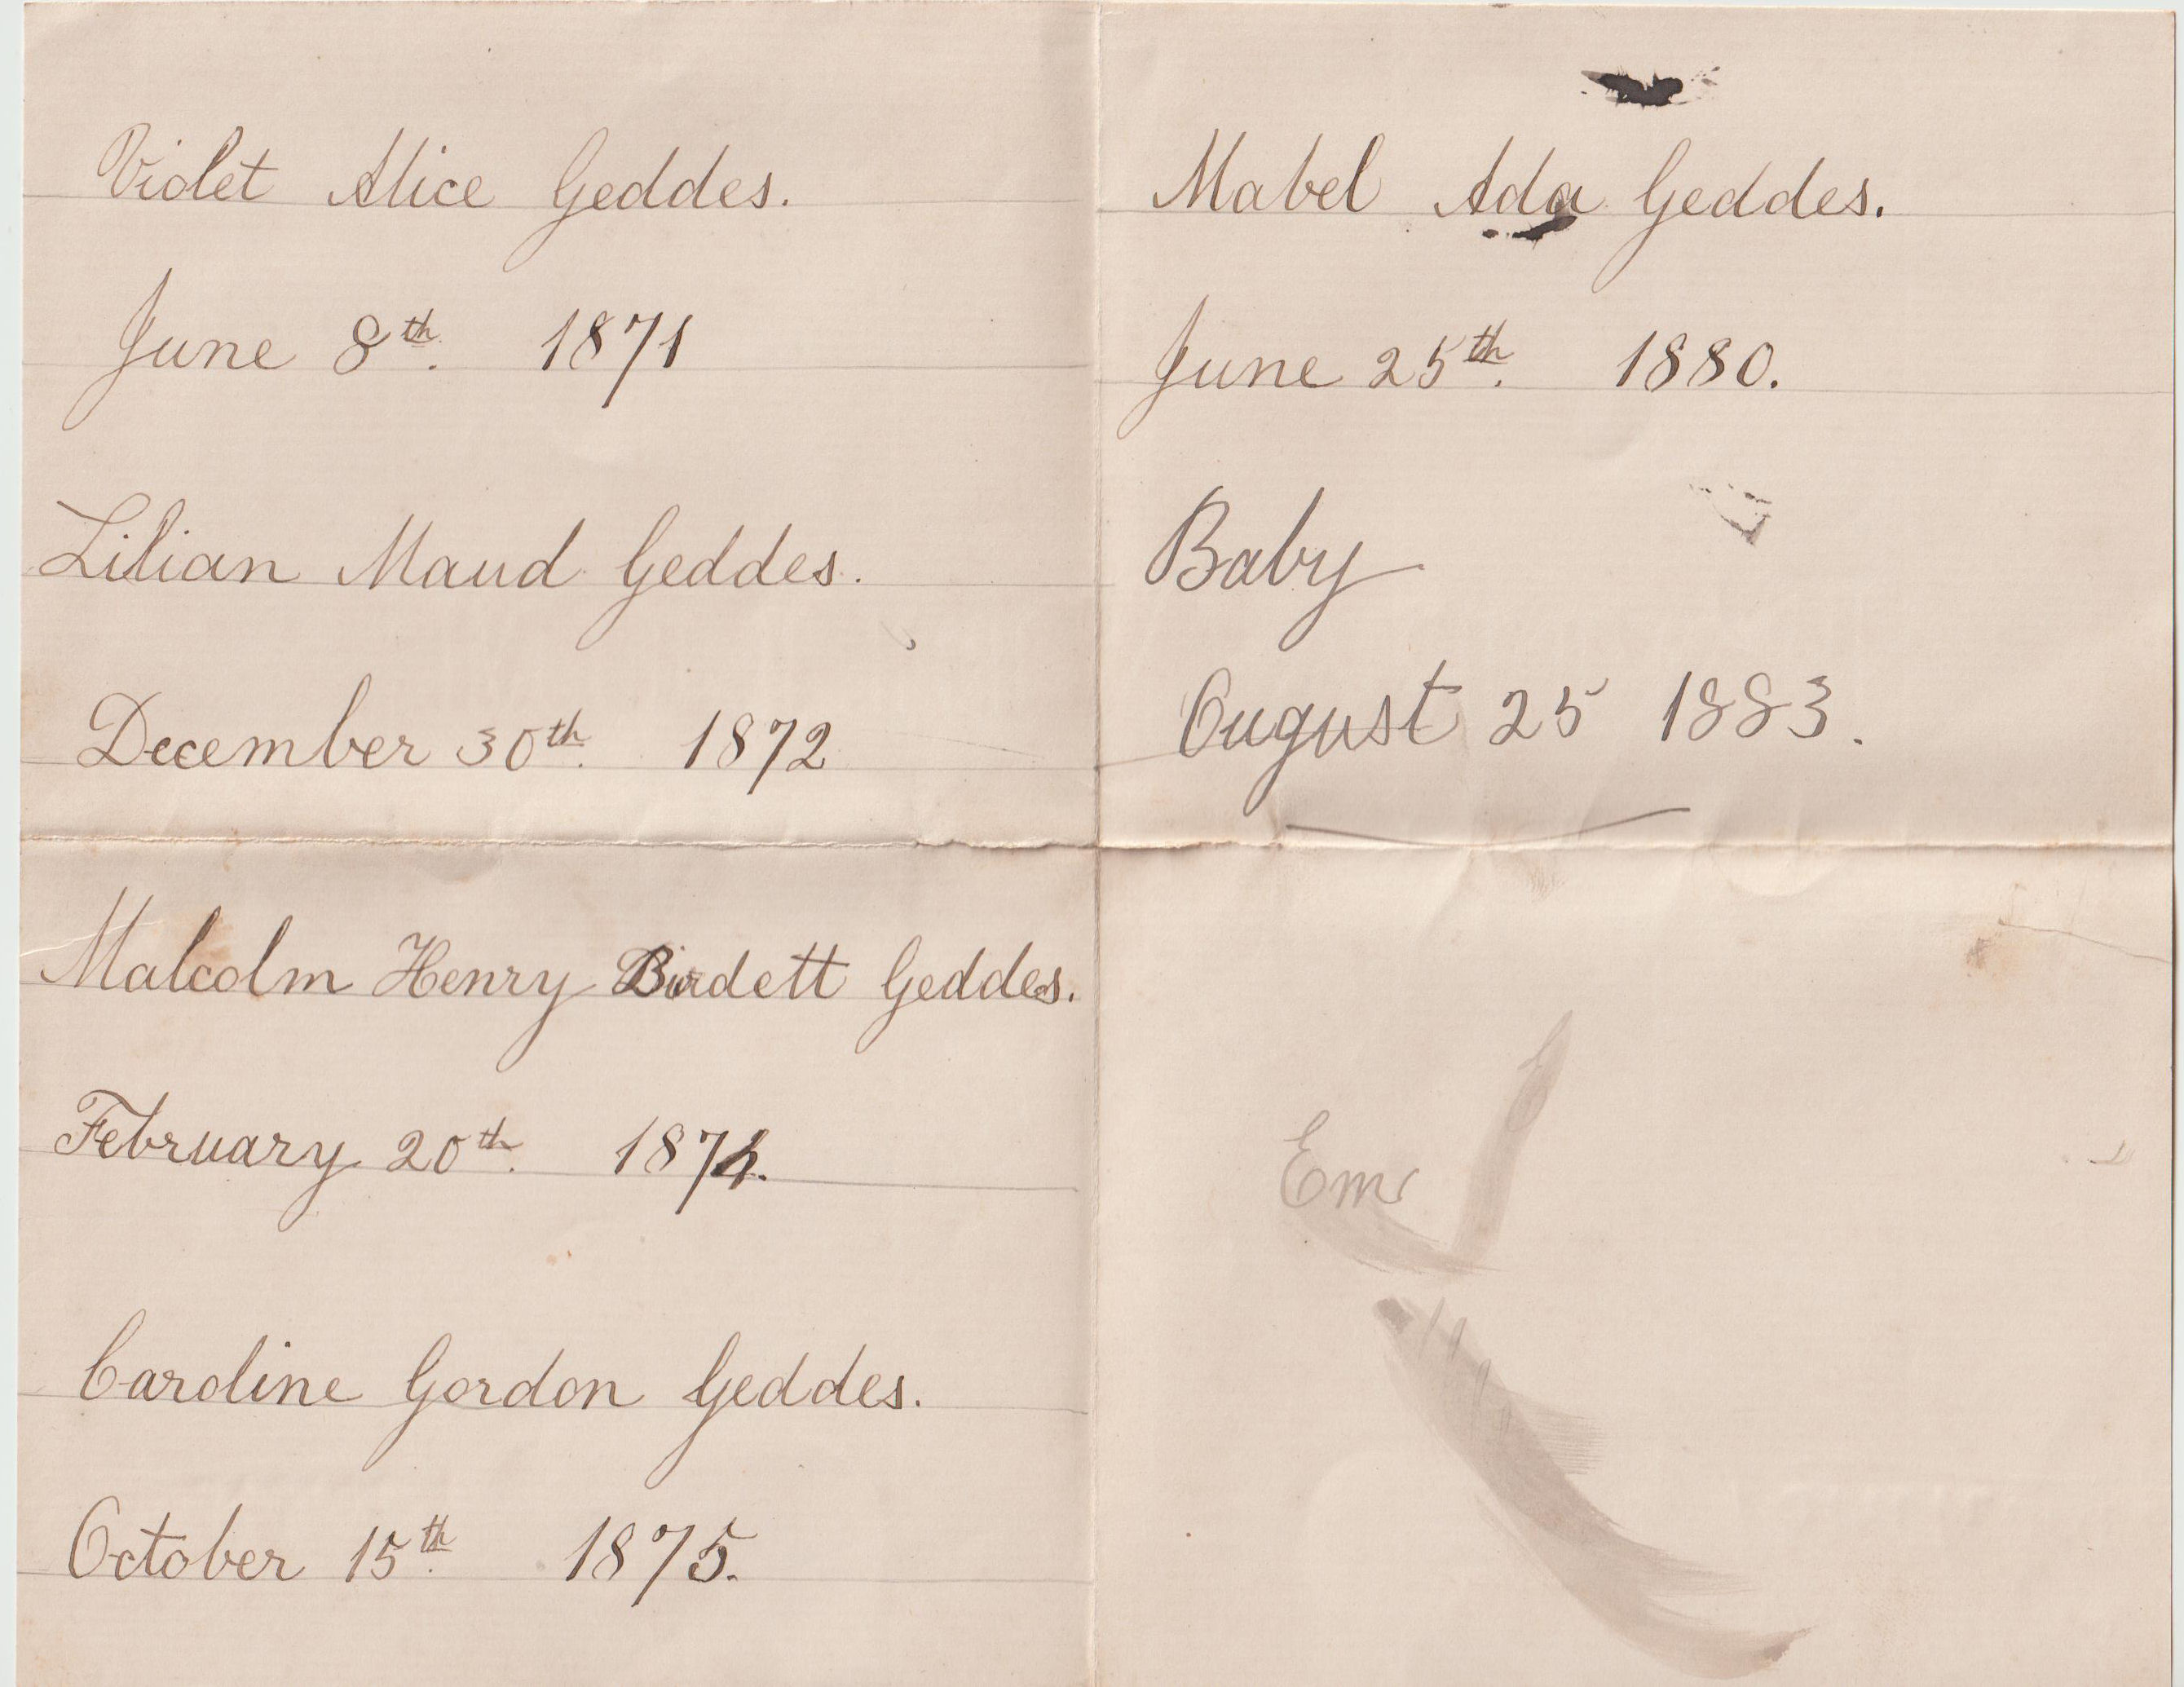 Violet Alice Geddes.
June 8th. 1871
Lilian Maud Geddes.
December 30th. 1872
Malcolm Henry Burdett Geddes.
February 20th. 1874.
Caroline Gordon Geddes.
October 15th. 1875.
Mabel Ada Geddes.
June 25th. 1880.
Baby
August 25 1883.
Em